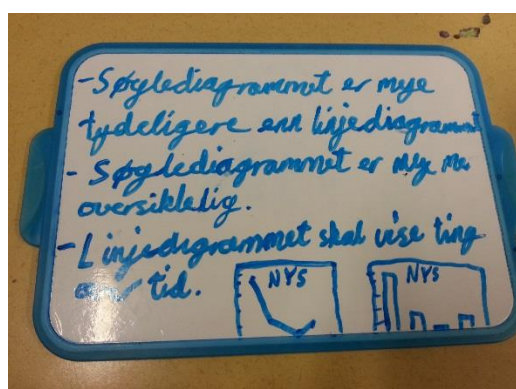 - Søylediagrammet er mye
tydeligere enn linjediagrammet
- Søylediagrammet er mye me
oversiktelig.
- Linjedigrammet skal vise ting
over tid.
NYS NYS